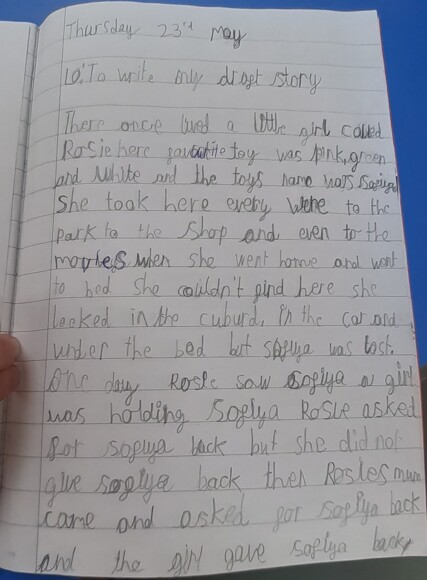 Thursday 23rd May
L0: To write my draft story
There once lived a little girl called
Rosie here favourite toy was pink, green
and white and the toys name was Sofiya
She took here eveby were to the
park to the shop and even to the
movies when she went home and went
to bed she couldn't find here she
looked in the cuburd, in the car and
under the bed but sofiya was lost.
One day Rosie saw Sofiya a girl
was holding Sofiya Rosie asked
for sofiya back but she did not
give sofiya back then Rosies mum
came and asked for sofiya back
and the girl gave sofiya back,